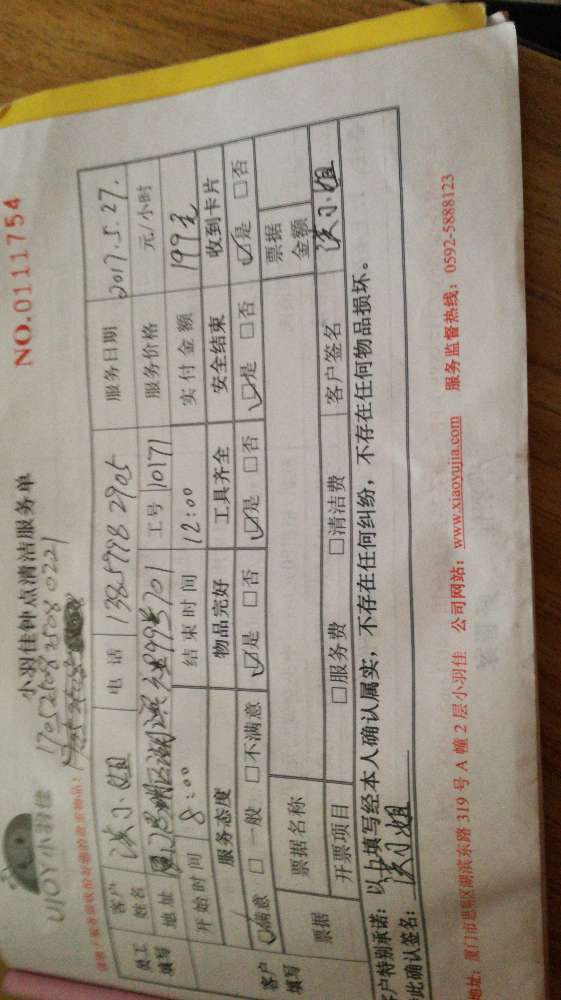 UJOY小羽佳
NO.0111754
小羽佳钟点清洁服务单
1705250825080221
员工填写
客户姓名 洪小姐 电话 138 5998 2905 服务日期 2017.5.27.
地址 工号 10171 服务价格 元/小时
开始时间 8:00 结束时间 12:00 实付金额 199元
客户填写
服务态度 物品完好 工具齐全 安全结束 收到卡片
☑满意 □一般 □不满意 ☑是 □否 ☑是 □否 ☑是 □否 ☑是 □否
票据 票据名称 票据金额
开票项目 □服务费 □清洁费 客户签名 洪小姐
客户特别承诺:以上填写经本人确认属实,不存在任何纠纷,不存在任何物品损坏。
此确认签名: 洪小姐
地址:厦门市思明区湖滨东路 319 号 A 幢 2 层小羽佳 公司网站:www.xiaoyujia.com 服务监督热线:0592-5888123